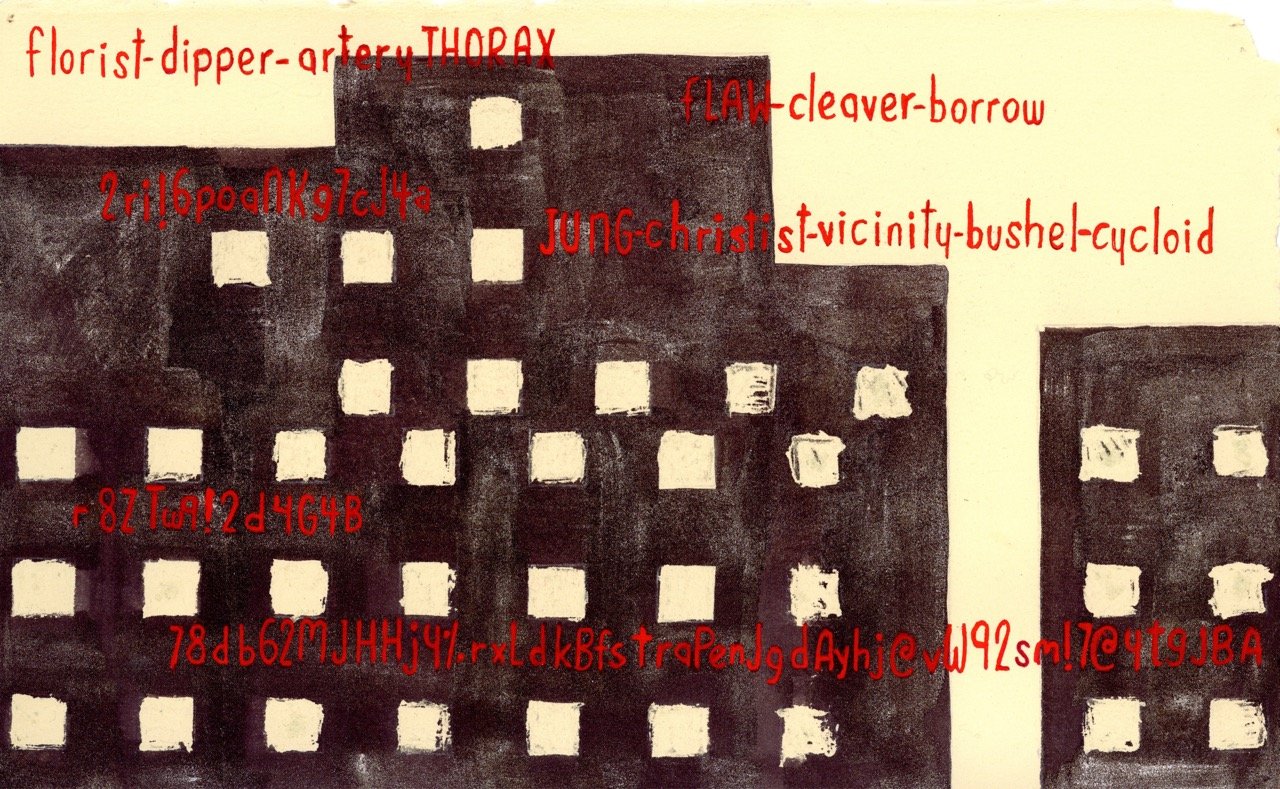 florist-dipper-artery THORAX
fLAW-cleaver-borrow
2rj!6poanKg7cJ4a
JUNG-christist-vicinity-bushel-cycloid
r8ZTwA!2d4G4B
78db62MJHHj4%.rxLdkBfstraPenJgdAyhj@vW92sm!7@4t9JBA